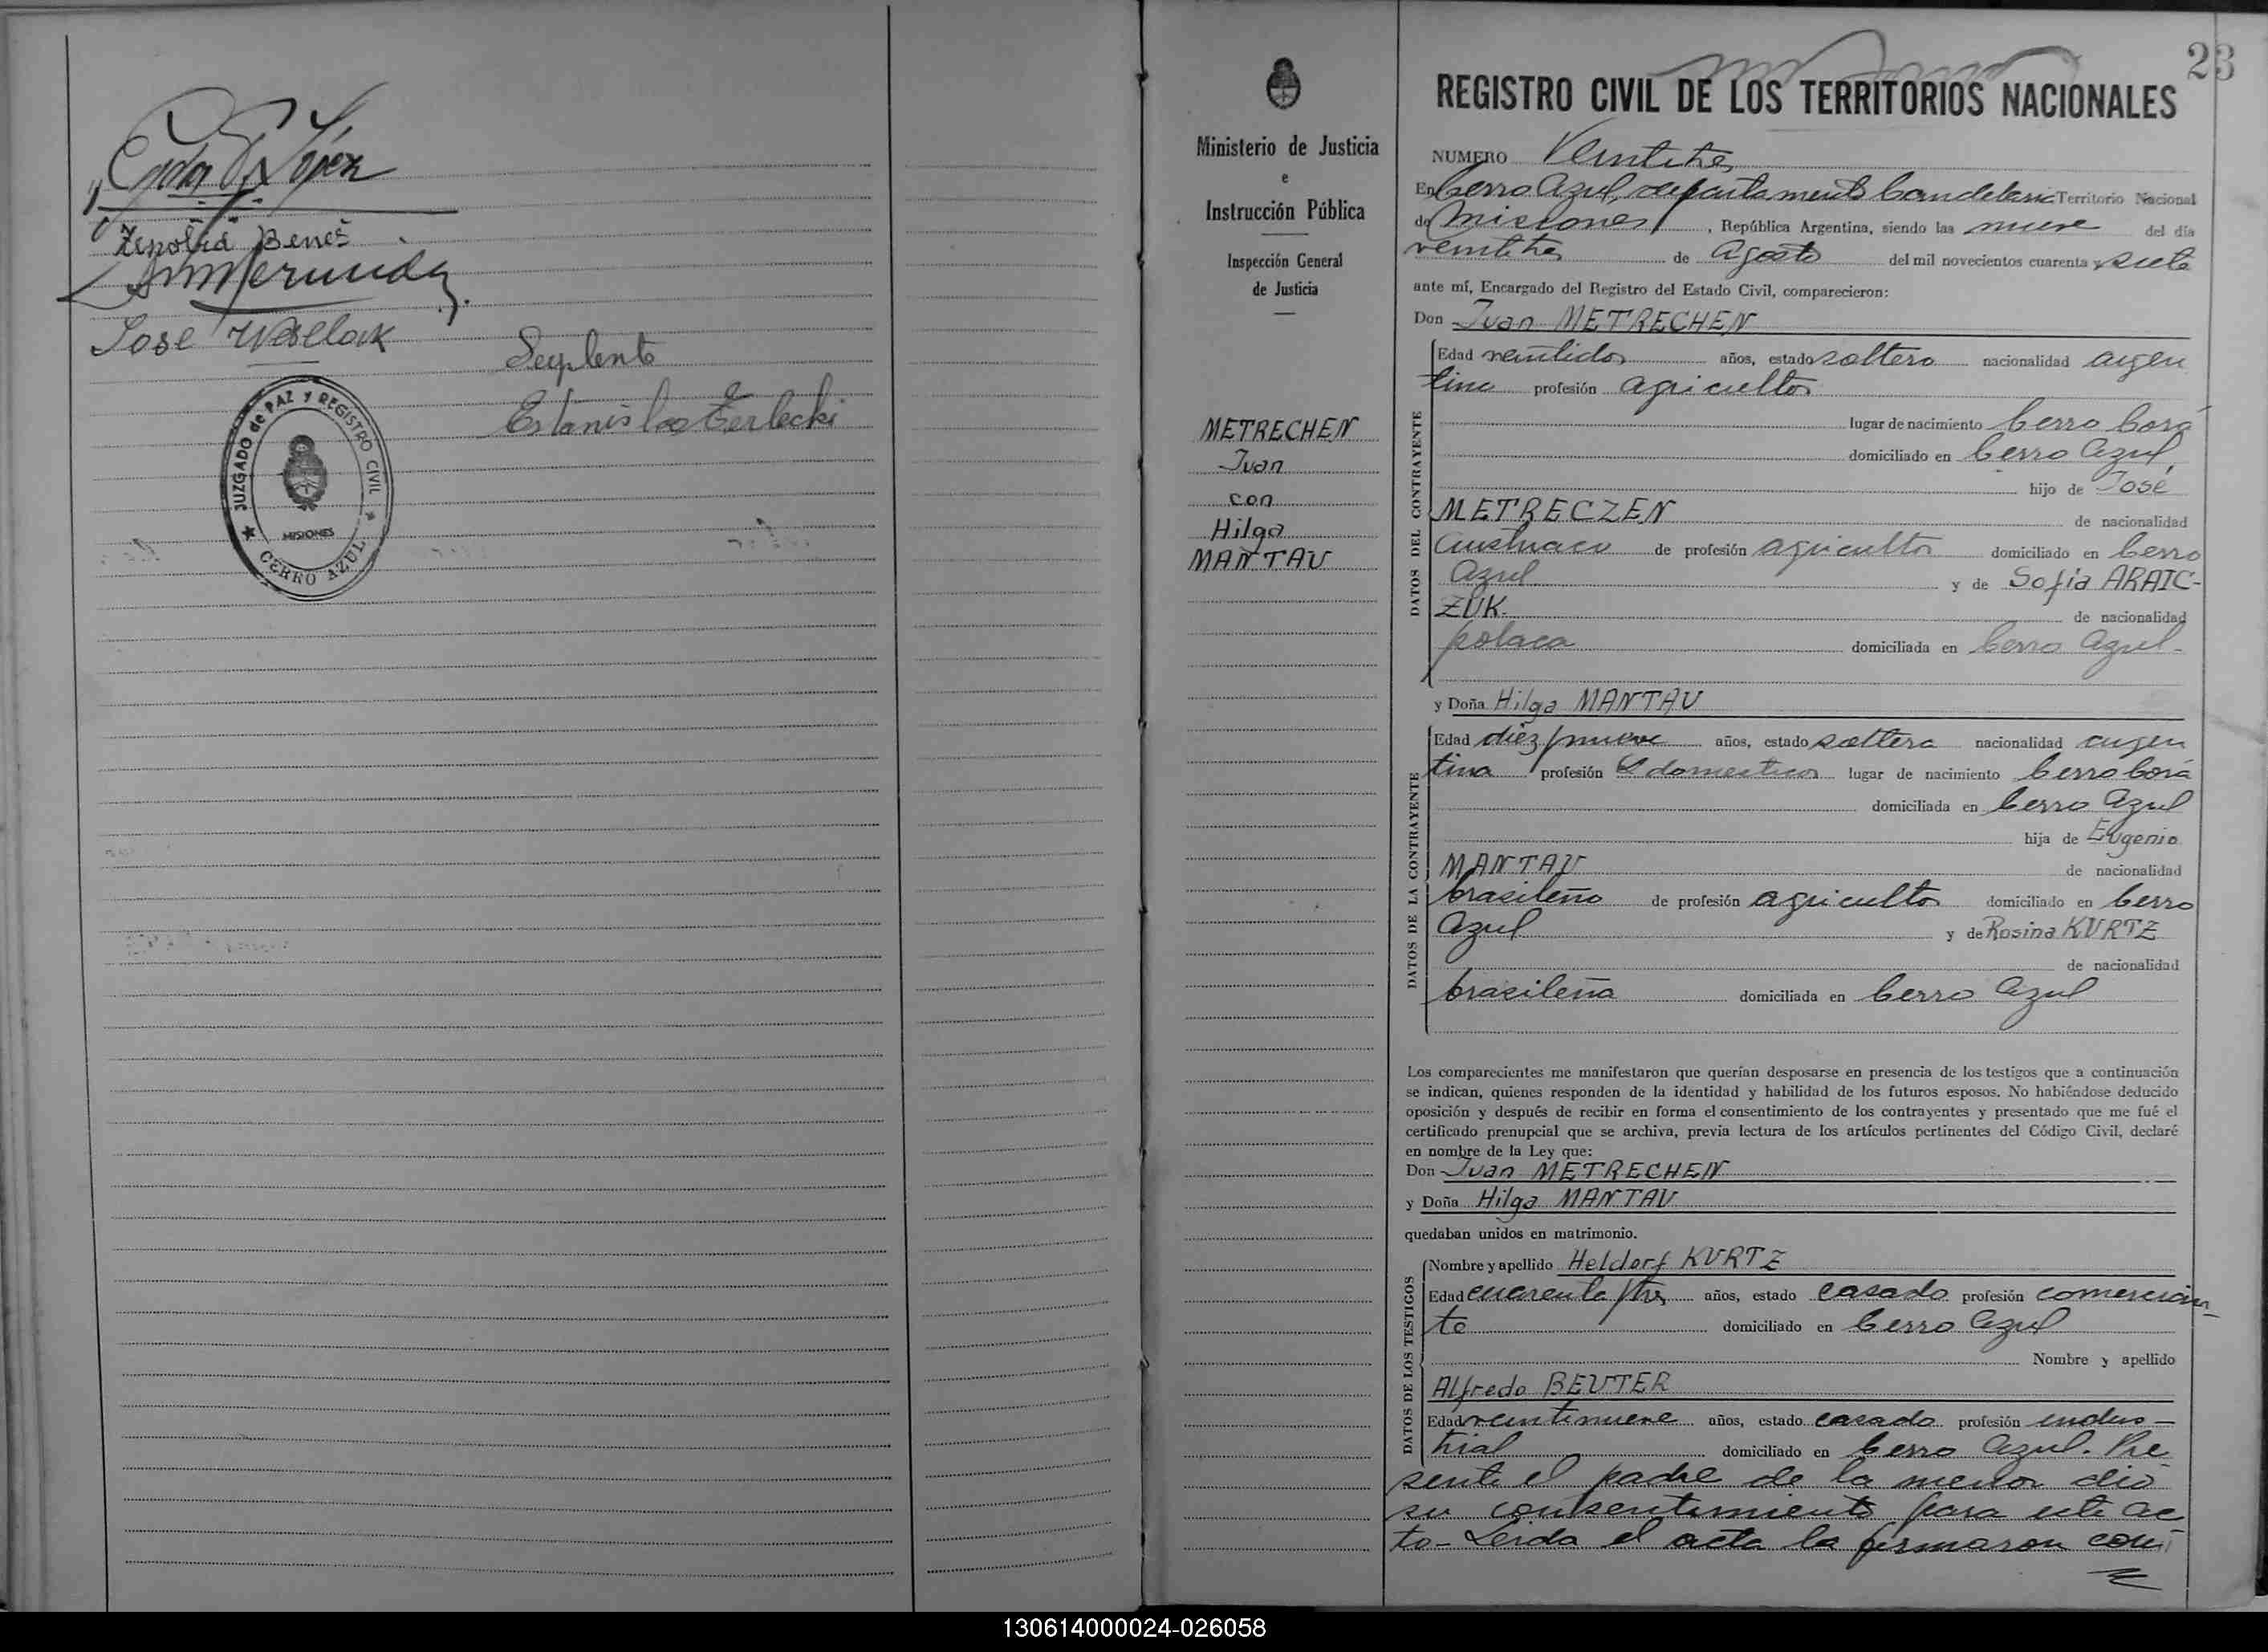 José Wesllok
Suplente
Estanislao Terlecki
JUZGADO de PAZ Y REGISTRO CIVIL
MISIONES
CERRO AZUL
23
Ministerio de Justicia
e
Instrucción Pública
Inspección General
de Justicia
METRECHEN
Juan
con
Hilga
MANTAU
REGISTRO CIVIL DE LOS TERRITORIOS NACIONALES
NUMERO Veintitres
En Cerro Azul, departamento Candelaria Territorio Nacional
de Misiones, República Argentina, siendo las nueve del día
veintitres de Agosto del mil novecientos cuarenta y siete
ante mí, Encargado del Registro del Estado Civil, comparecieron:
Don Juan METRECHEN
DATOS DEL CONTRAYENTE
Edad veintidos años, estado soltero nacionalidad argen
tino profesión agricultor
lugar de nacimiento Cerro Corá
domiciliado en Cerro Azul,
hijo de José
METRECZEN de nacionalidad
austriaco de profesión agricultor domiciliado en Cerro
Azul y de Sofia ARAIC-
ZUK. de nacionalidad
polaca domiciliada en Cerro Azul-
y Doña Hilga MANTAU
DATOS DE LA CONTRAYENTE
Edad diez y nueve años, estado soltera nacionalidad argen
tina profesión Q domesticos lugar de nacimiento Cerro Corá
domiciliada en Cerro Azul
hija de Eugenio
MANTAU de nacionalidad
brasileño de profesión agricultor domiciliado en Cerro
Azul y de Rosina KURTZ
de nacionalidad
brasileña domiciliada en Cerro Azul
Los comparecientes me manifestaron que querían desposarse en presencia de los testigos que a continuación
se indican, quienes responden de la identidad y habilidad de los futuros esposos. No habiéndose deducido
oposición y después de recibir en forma el consentimiento de los contrayentes y presentado que me fué el
certificado prenupcial que se archiva, previa lectura de los artículos pertinentes del Código Civil, declaré
en nombre de la Ley que:
Don Juan METRECHEN
y Doña Hilga MANTAU
quedaban unidos en matrimonio.
DATOS DE LOS TESTIGOS
Nombre y apellido Heldorf KURTZ
Edad cuarenta y tres años, estado casado profesión comercian-
te domiciliado en Cerro Azul
Nombre y apellido
Alfredo BEUTER
Edad veintinueve años, estado casado profesión indus-
trial domiciliado en Cerro Azul. Pre
sente el padre de la menor dió
su consentimiento para este ac
to- Leida el acta la firmaron con
130614000024-026058